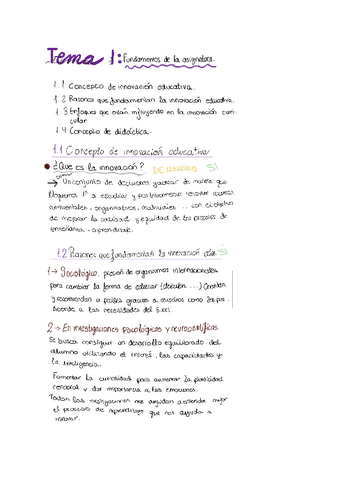 Tema 1: Fundamentos de la asignatura
1.1 Concepto de innovación educativa.
1.2 Razones que fundamentan la innovación educativa.
1.3 Enfoques que están influyendo en la innovación curri-
cular
1.4 Concepto de didáctica.
1.1 Concepto de innovación educativa
¿Que es la innovación? SI
→ Un conjunto de decisiones y de manera que
1º a estudiar y posteriormente resolver
ambientales, organizativos, materiales ... con el objetivo
de mejorar la calidad y equidad de los procesos de
enseñanza - aprendizaje.
1.2 Razones que fundamentan la innovación SI
1→ Sociológico, presión de organismos internacionales
para cambiar la forma de educar
y recomiendan a países gracias a
Acorde a las necesidades del
2→ En investigaciones psicológicas y neurocientíficas.
Se busca conseguir un desarrollo equilibrado del
alumno utilizando el interés, las capacidades y
la inteligencia.
Fomentar la curiosidad para aumentar la plasticidad
cerebral y dar importancia a las emociones.
Todas las investigaciones nos ayudan a entender mejor
el proceso de aprendizaje que nos ayuda a
innovar.